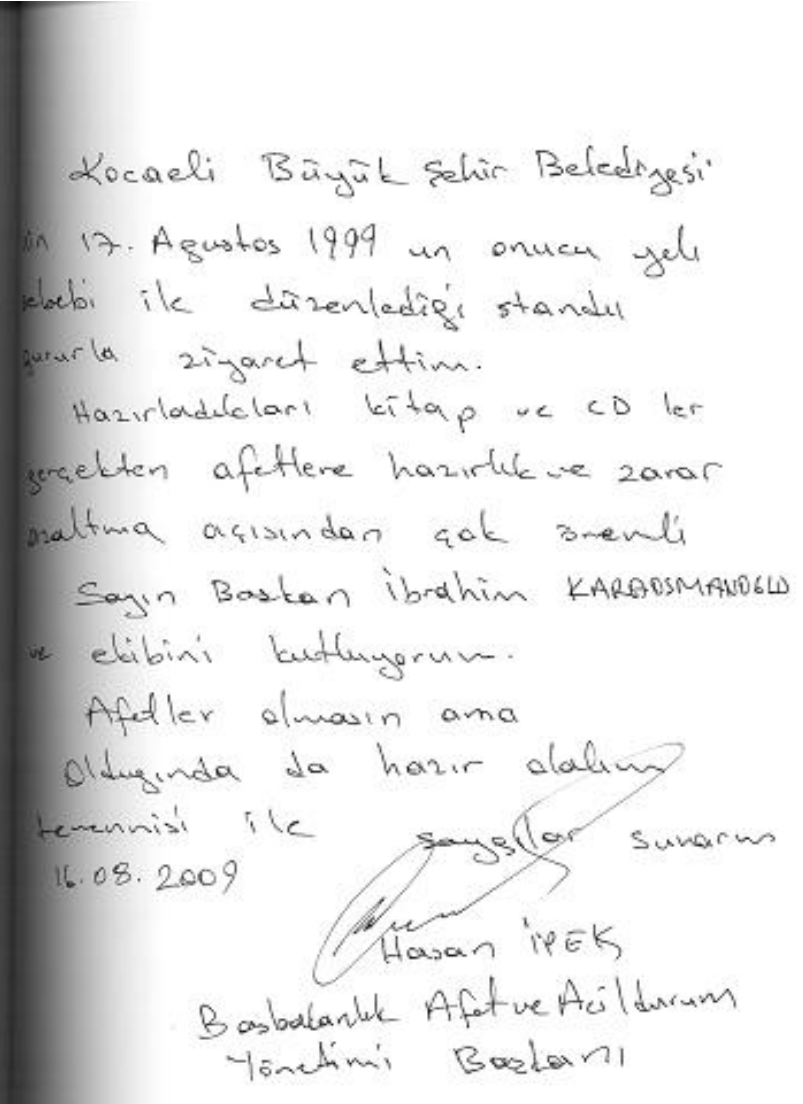 Kocaeli Büyük Şehir Belediyesi
nin 17. Agustos 1999 un onucu yılı
sebebi ile düzenlediği standı
gururla ziyaret ettim.
Hazırladıkları kitap ve CD ler
gerçekten afetlere hazırlık ve zarar
azaltma açısından çok önemli
Sayın Baskan İbrahim KARAOSMANOĞLU
ve ekibini kutluyorum.
Afetler olmasın ama
Oldugunda da hazır olalım
temennisi ile
saygılar sunarım
16.08.2009
Hasan İPEK
Basbakanlık Afet ve Acil durum
Yönetimi Baskanı